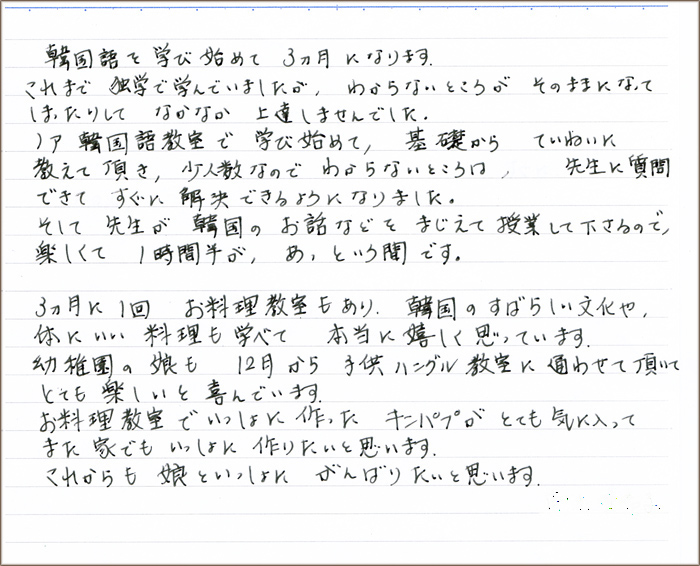 韓国語を学び始めて 3ヵ月になります.
これまで 独学で学んでいましたが, わからないところが そのままになって
しまったりして なかなか 上達しませんでした.
ノア 韓国語教室で 学び始めて, 基礎から ていねいに
教えて頂き, 少人数なので わからないところは, 先生に質問
できて すぐに 解決できるようになりました。
そして 先生が 韓国の お話などを まじえて授業して下さるので,
楽しくて 1時間半が, あっという間です。
3ヵ月に1回 お料理教室もあり. 韓国のすばらしい文化や,
体にいい 料理も学べて 本当に嬉しく思っています.
幼稚園の娘も 12月から 子供ハングル教室に通わせて頂いて
とても楽しいと喜んでいます.
お料理教室でいっしょに作った キンパプが とても気に入って
また 家でも いっしょに 作りたいと思います.
これからも 娘といっしょに がんばりたいと思います.